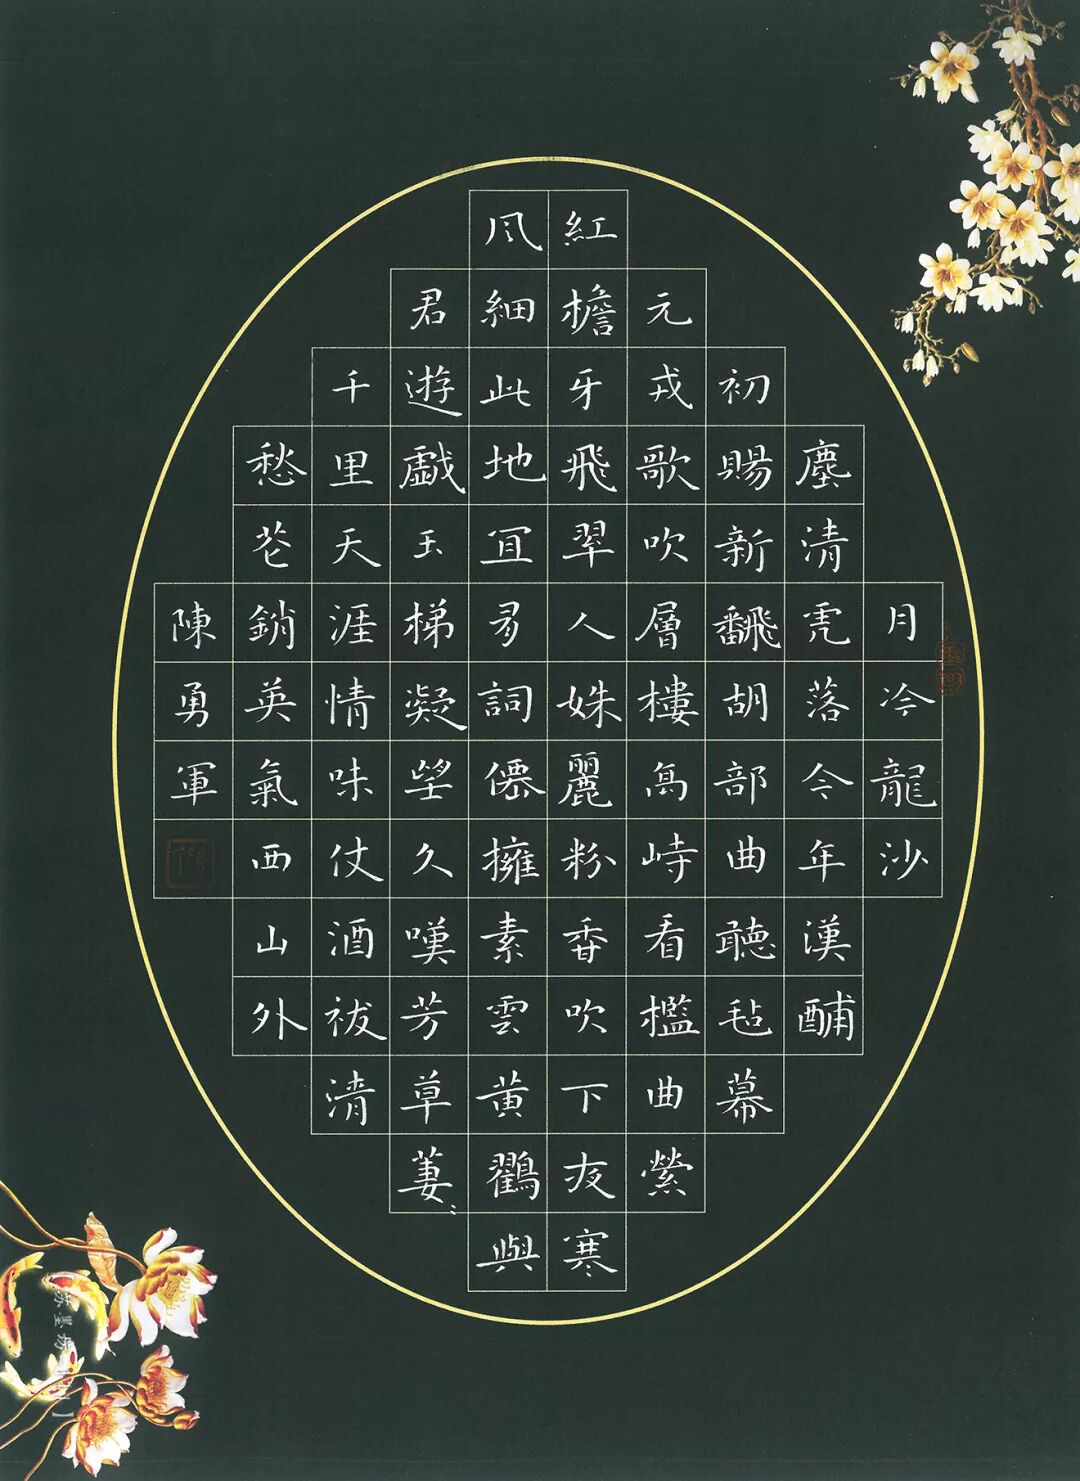 月冷龍沙
塵清虎落今年漢酺
初賜新飜胡部曲聽毡幕
元戎歌吹層樓高峙看檻曲縈
紅檐牙飛翠人姝麗粉香吹下夜寒
風細此地宜有詞僊擁素雲黃鶴與
君遊戲玉梯凝望久嘆芳草萋〻
千里天涯情味仗酒祓清
愁花銷英氣西山外
陳勇軍